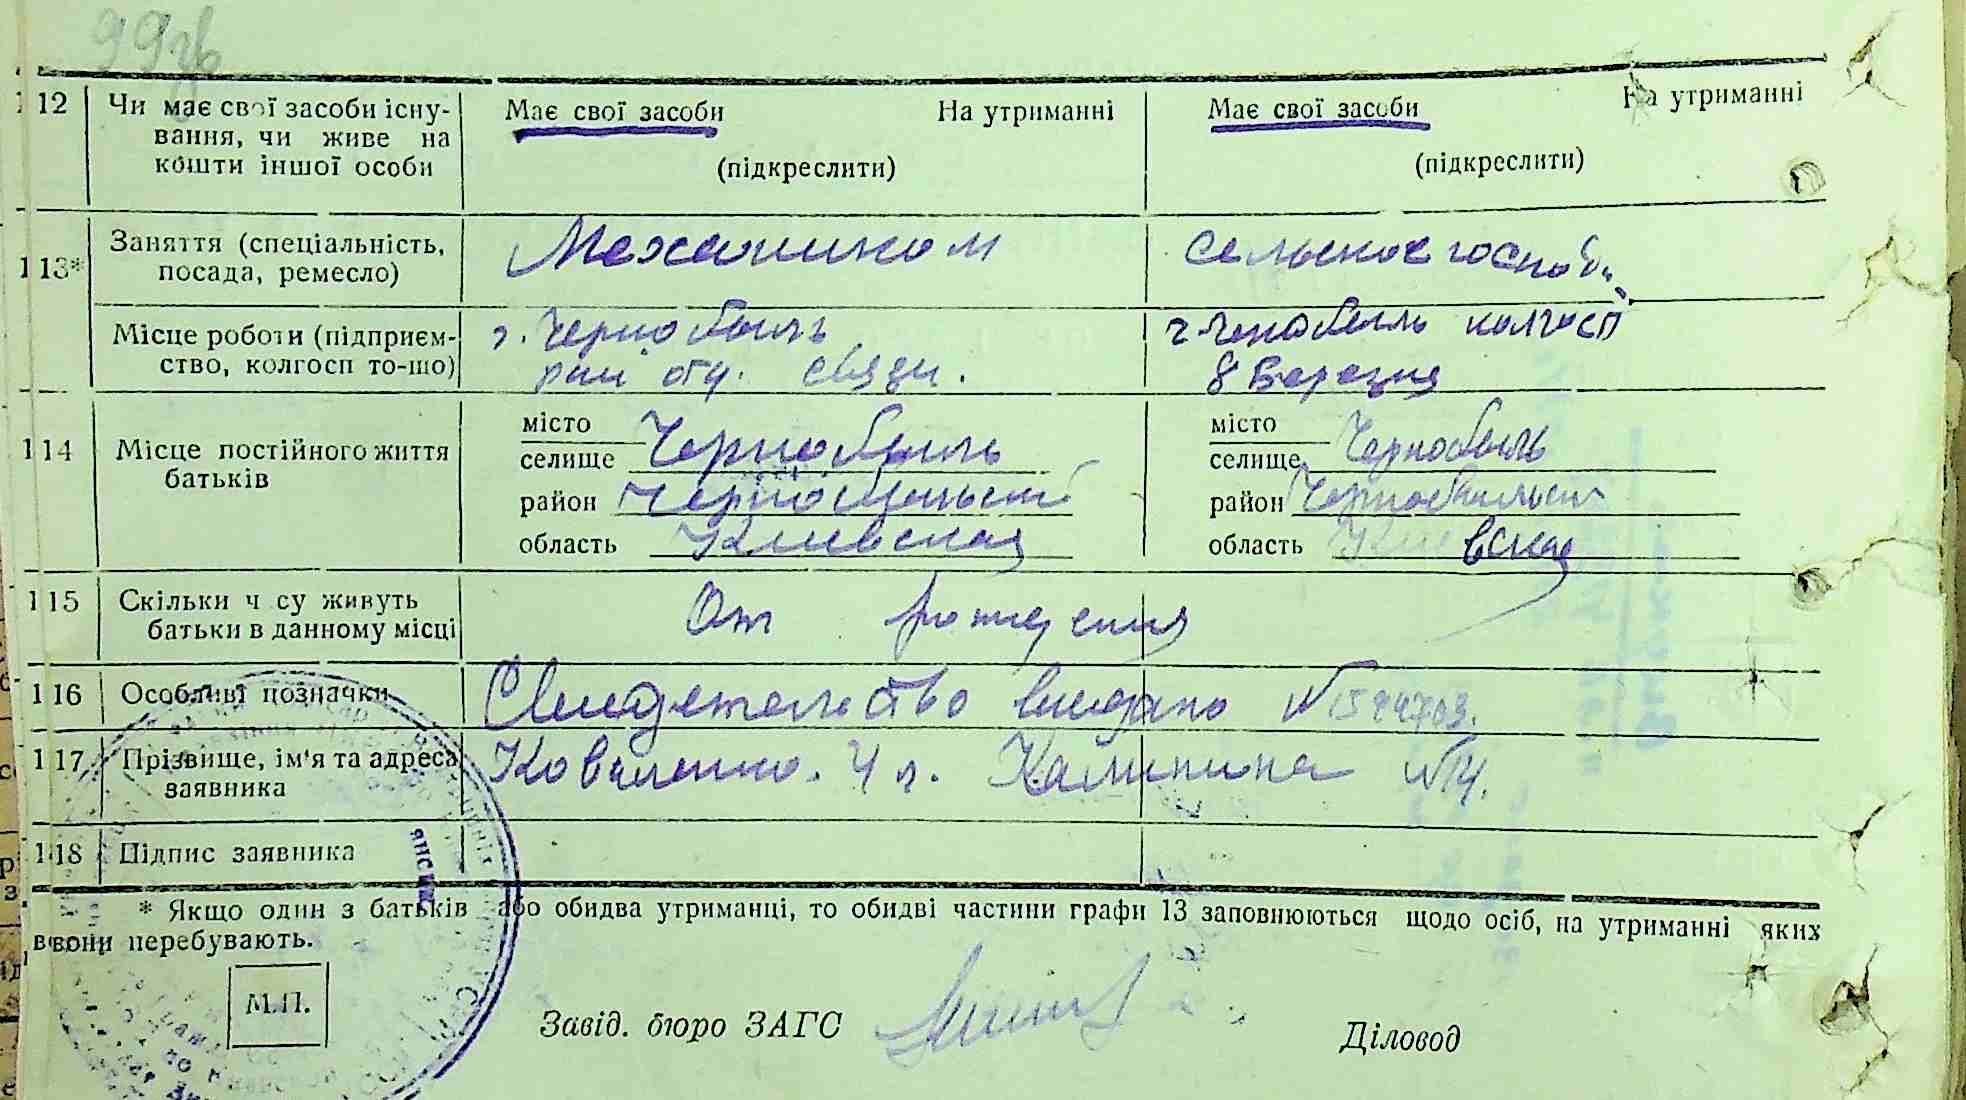 99зв
12 Чи має свої засоби існу- Має свої засоби На утриманні Має свої засоби На утриманні
вання, чи живе на
кошти іншої особи (підкреслити) (підкреслити)
13* Заняття (спеціальність, Механиком Сельское господ.
посада, ремесло)
Місце роботи (підприєм- г. Чернобыль г. Чернобыль колгосп
ство, колгосп то-що) рай отд. связи. 8 Березня
14 Місце постійного життя місто Чернобыль місто Чернобыль
батьків селище селище
район Чернобыльский район Чернобыльск
область Киевская область Киевская
15 Скільки ч су живуть От рождения
батьки в данному місці
16 Особливі позначки Свидетельство выдано №
17 Прізвище, ім'я та адреса Коваленко. Калинина №14.
заявника
18 Підпис заявника
* Якщо один з батьків або обидва утриманці, то обидві частини графи 13 заповнюються щодо осіб, на утриманні яких
вони перебувають.
М.П.
Завід. бюро ЗАГС Діловод